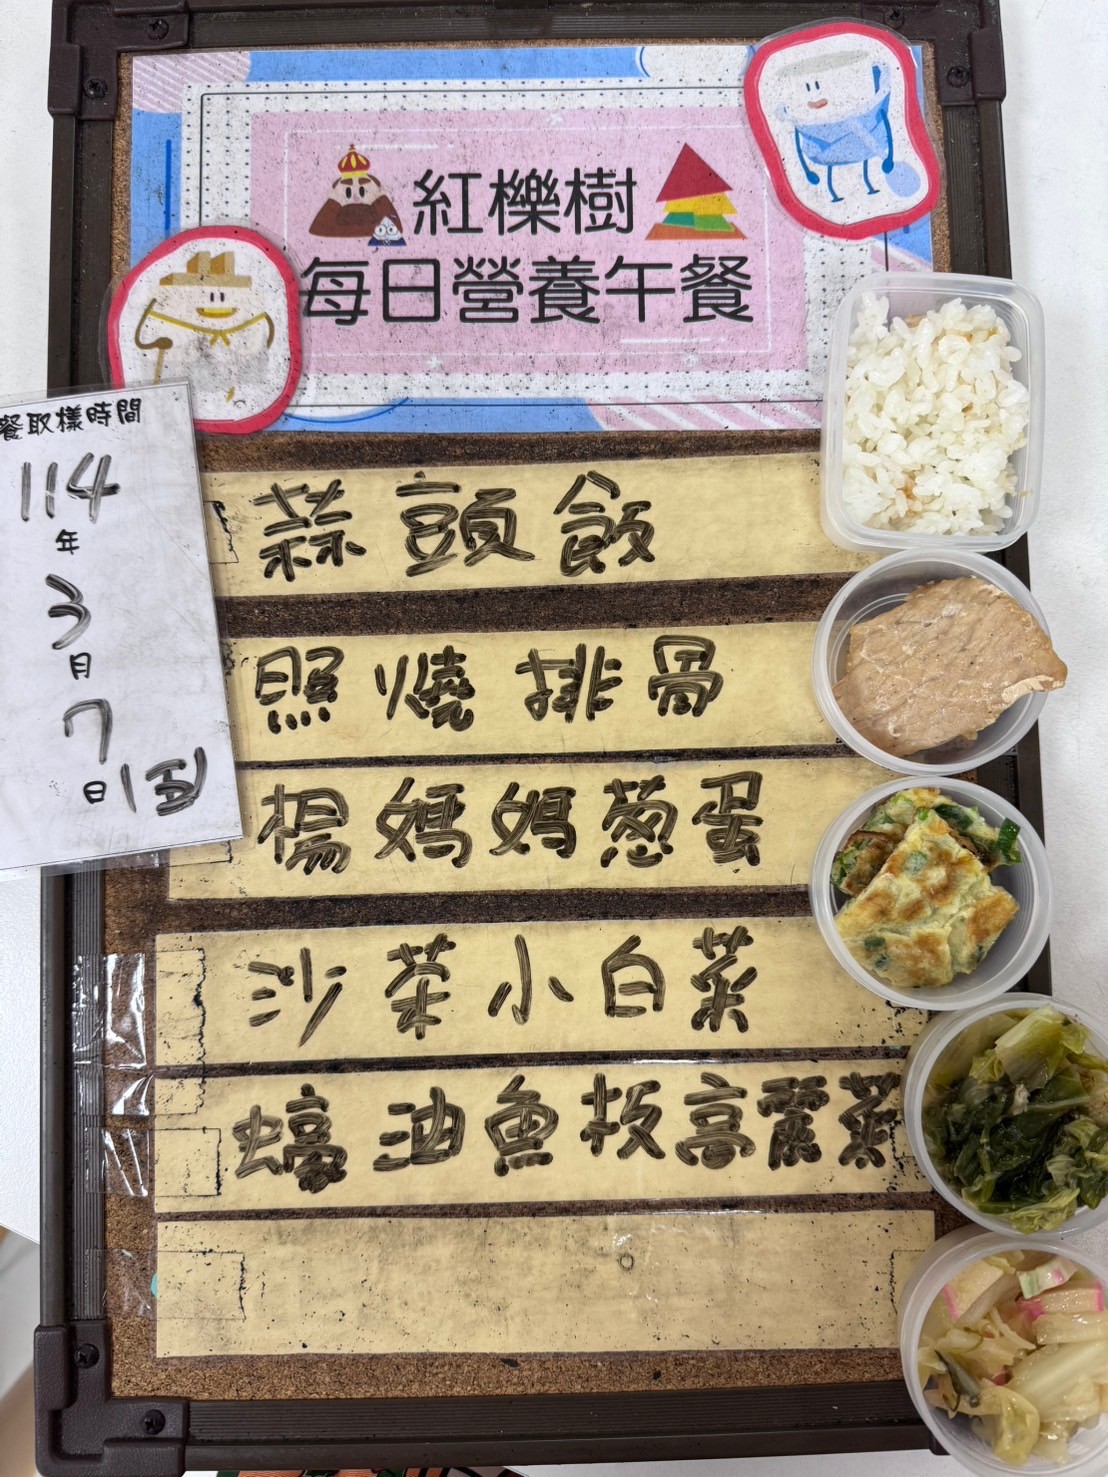 紅櫟樹
每日營養午餐
餐取樣時間
114
年
3
月
7
日 1固
蒜頭飯
照燒排骨
楊媽媽蔥蛋
沙茶小白菜
蠔油魚板高麗菜